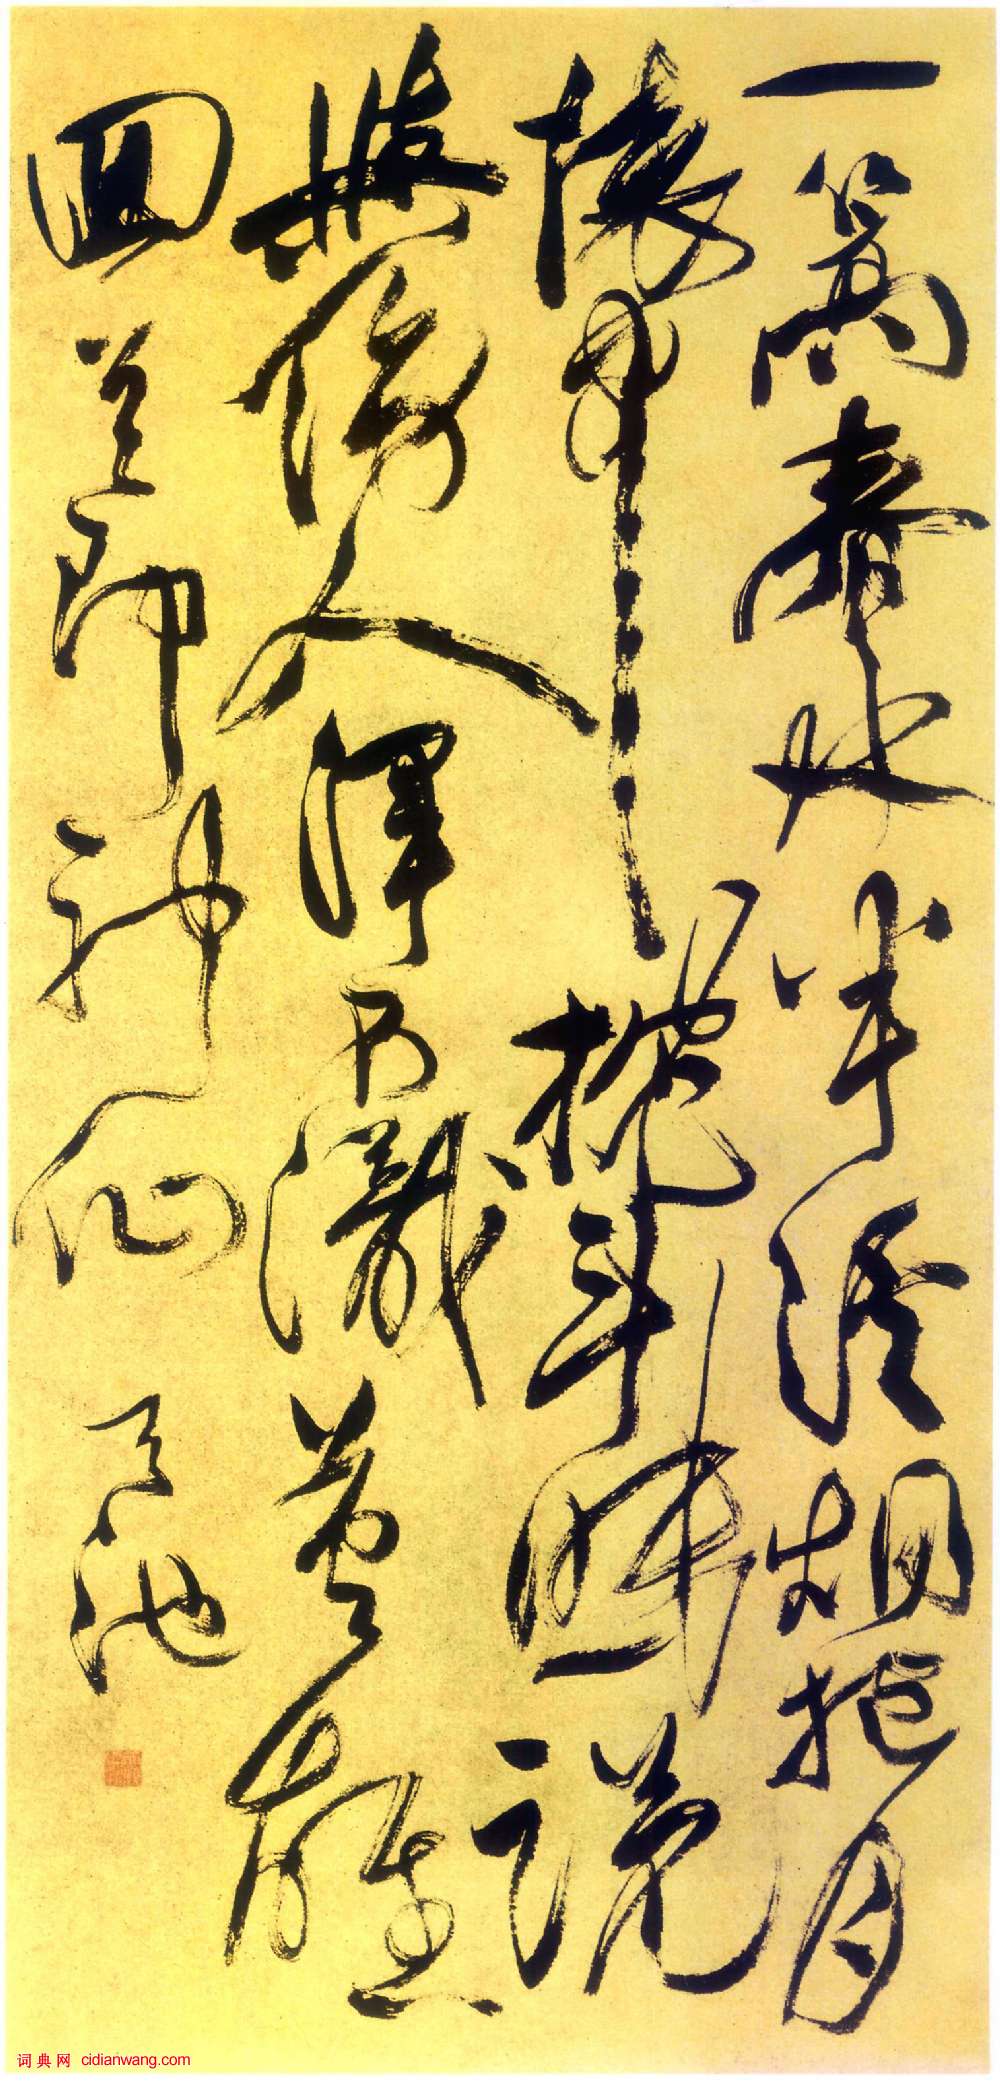 一篙春水半溪烟抱月
懷中枕斗眠說
與傍人渾不識英雄
回首即神仙 天池
词典网 cidianwang.com